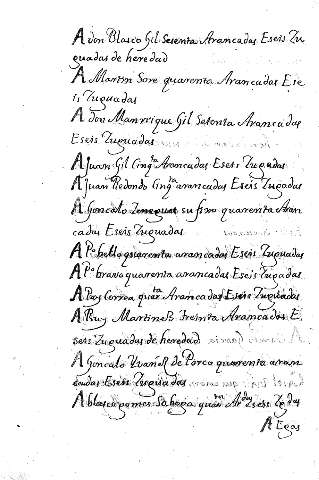 A don Blasco Gil Setenta Arancadas E seis Zu
guadas de heredad
A Martin Sore quarenta Arancadas E se
is Zuguadas
A don Manrrique Gil Setenta Arancadas
E seis Zuguadas
A Juan Gil Cinq.ta Arancadas E seis Zuguadas
A Juan Redondo Cinq.ta arancadas E seis Zugadas
A Goncalo su fixo quarenta Aran
cadas E seis Zuguadas
A P.o bello quarenta arancadas E seis Zuguadas
A P.o bravo quarenta arancadas E seis Zugadas
A Roy Correa quar.ta Arancadas E seis Zuguadas
A Ruy Martines treinta Arancadas E
seis Zuguadas de heredad
A Goncalo Yvanes de Porco quarenta aran
cadas E seis Zuguadas
A blasco gomes quar.ta Ar.das E seis Zg.das
A Egas